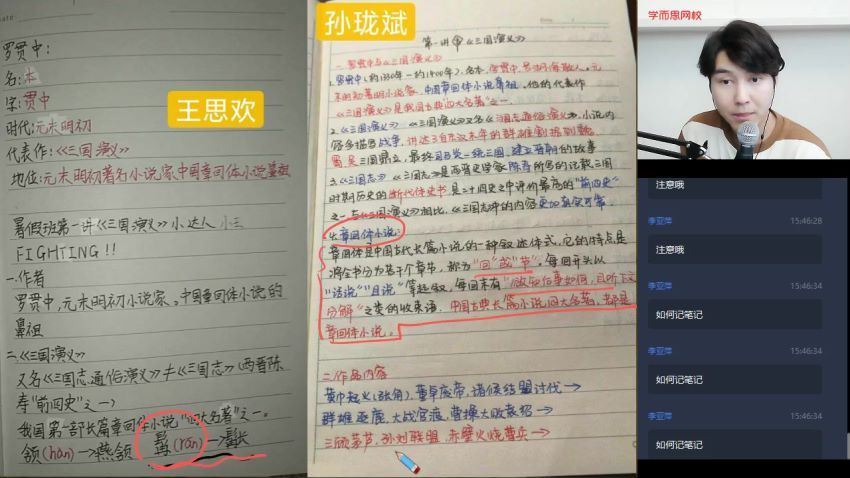 王思欢
罗贯中:
名:本
字:贯中
时代:元末明初
代表作:《三国演义》
地位:元末明初著名小说家,中国章回体小说鼻祖
暑假班第一讲《三国演义》小达人
FIGHTING!!
一.作者
罗贯中,元末明初小说家。中国章回体小说的
鼻祖
二.《三国演义》
又名《三国志通俗演义》≠《三国志》(西晋陈
寿"前四史"之一)
我国第一部长篇章回体小说"四大名著"之一。
颔(hàn)→燕颔 髯(rán)→髯长
孙珑斌
第一讲《三国演义》
一.罗贯中与《三国演义》
1.罗贯中(约1330年-约1400年),名本,字贯中,号湖海散人。元
末明初著明小说家,中国章回体小说鼻祖,他的代表作
《三国演义》是我国古典四大名著之一。
2.《三国演义》:《三国演义》又名《三国志通俗演义》,小说内
容多描写战争,讲述了自东汉末年的群雄割据到魏
蜀,吴三国鼎立,最终司马炎一统三国,建立晋朝的故事
3.《三国志》:《三国志》是西晋史学家陈寿所写的记载三国
时期历史的断代传史书是二十四史之中评价最高的"前四史"
之一与《三国演义》相比,《三国志》中的内容更加真实可靠.
4.章回体小说:
章回体是中国古代长篇小说的一种叙述体式,它的特点是
将全书分为若干个章节,称为"回"或"节"。每回开头以
"话说""且说"等起叙,每回末有"欲知后事如何,且听下文
分解"之类的收束语.中国古典长篇小说四大名著,都是
章回体小说。
二.作品内容
黄巾起义(张角),董卓废帝,诸侯结盟讨伐→
群雄逐鹿,大战官渡,曹操大败袁绍→
三顾茅芦,孙刘联盟,赤壁火烧曹兵→
学而思网校
注意哦
李亚萍 15:46:28
注意哦
李亚萍 15:46:34
如何记笔记
李亚萍 15:46:34
如何记笔记
李亚萍 15:46:34
如何记笔记